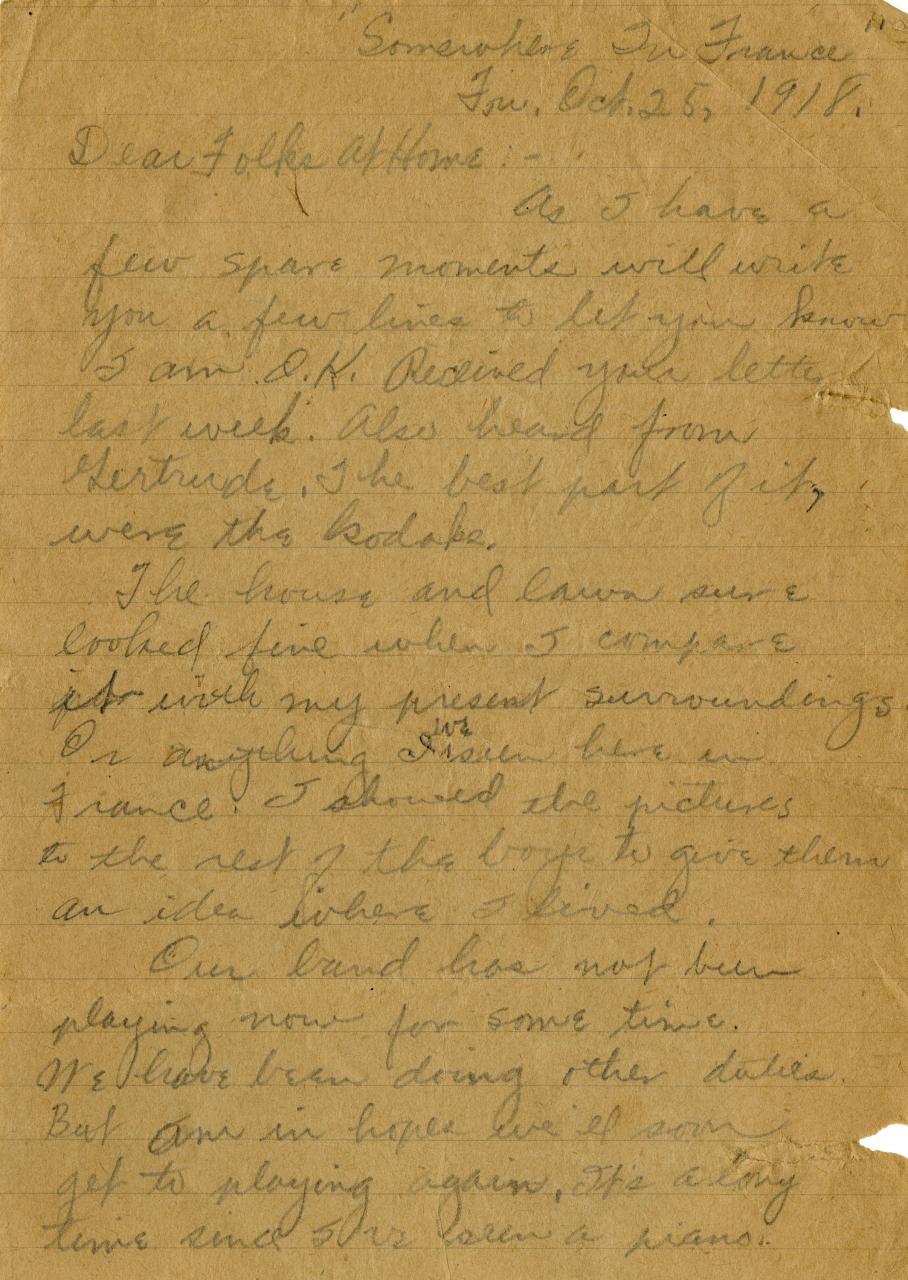 Somewhere In France
Fri. Oct. 25, 1918.
Dear Folks At Home :-
As I have a
few spare moments will write
you a few lines to let you know
I am O.K. Received your letter
last week. Also heard from
Gertrude. The best part of it,
were the kodaks.
The house and lawn sure
looked fine when I compare
it with my present surroundings.
Or anything I've seen here in
France. I showed the pictures
to the rest of the boys to give them
an idea where I lived.
Our band has not been
playing now for some time.
We have been doing other duties.
But am in hopes we'el soon
get to playing again. It's a long
time since I've seen a piano.